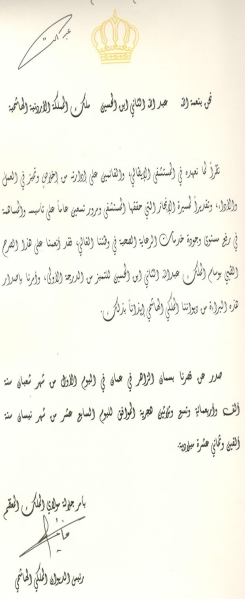 نحن بنعمة الله عبد الله الثاني ابن الحسين ملك المملكة الاردنية الهاشمية
نظراً لما نعهده في المستشفى الإيطالي، والقائمين على إدارته من إخلاص وتميز في العمل
والاداء، وتقديراً لمسيرة الإنجاز التي حققها المستشفى ومرور تسعين عاماً على تأسيسه والمساهمة
في رفع مستوى وجودة خدمات الرعاية الصحية في وطننا الغالي، فقد أنعمنا على هذا الصرح
الطبي بوسام الملك عبدالله الثاني ابن الحسين للتميز من الدرجة الاولى، وأمرنا بإصدار
هذه البراءة من ديواننا الملكي الهاشمي إيذاناً بذلك.
صدر عن قصرنا بسمان الزاهر في عمان في اليوم الاول من شهر شعبان سنة
ألف واربعماية وتسع وثلاثين هجرية الموافق لليوم السابع عشر من شهر نيسان سنة
ألفين وثماني عشرة ميلادية.
بامر جلالة مولاي الملك المعظم
رئيس الديوان الملكي الهاشمي